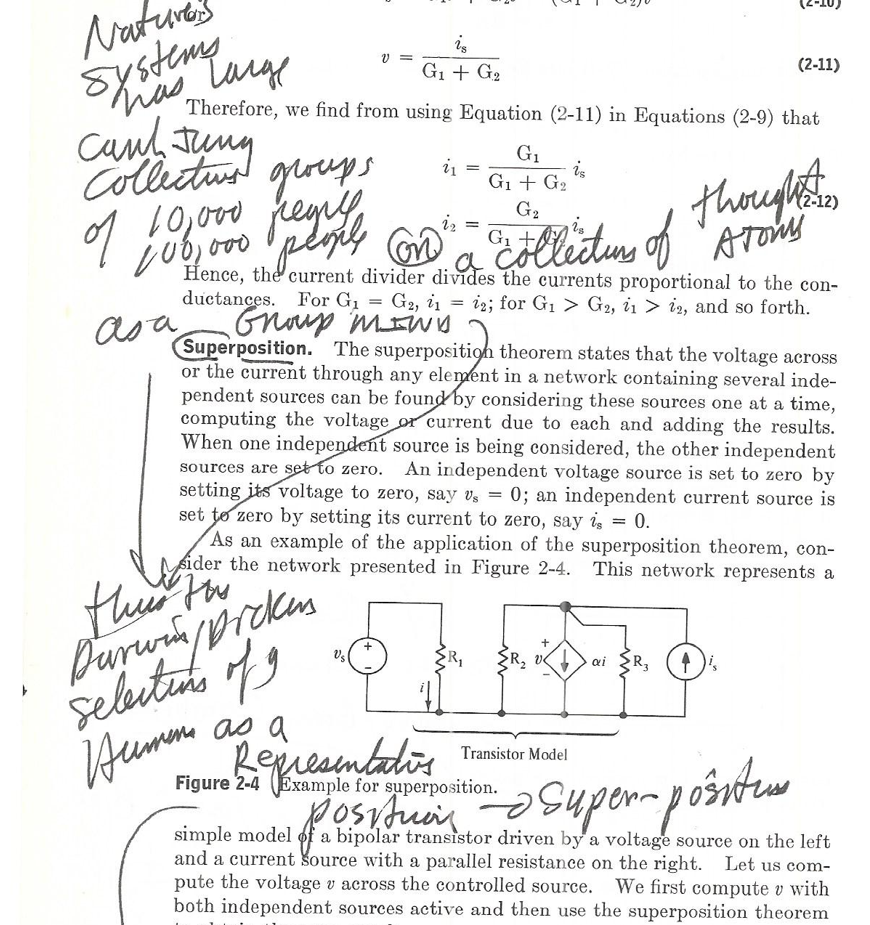 (2-10)
Nature's
systems
has large
v = i_s / (G₁ + G₂) (2-11)
Therefore, we find from using Equation (2-11) in Equations (2-9) that
Carl Jung
Collective groups
of 10,000 people
100,000 people
i₁ = G₁ / (G₁ + G₂) i_s
(2-12)
i₂ = G₂ / (G₁ + G₂) i_s
on a collectius of
thought
Atoms
Hence, the current divider divides the currents proportional to the con-
ductances. For G₁ = G₂, i₁ = i₂; for G₁ > G₂, i₁ > i₂, and so forth.
as a Group
Superposition. The superposition theorem states that the voltage across
or the current through any element in a network containing several inde-
pendent sources can be found by considering these sources one at a time,
computing the voltage or current due to each and adding the results.
When one independent source is being considered, the other independent
sources are set to zero. An independent voltage source is set to zero by
setting its voltage to zero, say vₛ = 0; an independent current source is
set to zero by setting its current to zero, say iₛ = 0.
As an example of the application of the superposition theorem, con-
sider the network presented in Figure 2-4. This network represents a
thus the
Darwin/Dickens
selectius of 9
Humans as a
Representative
position → Super-position
vₛ + − R₁ i R₂ + v − αi R₃ iₛ
Transistor Model
Figure 2-4 Example for superposition.
simple model of a bipolar transistor driven by a voltage source on the left
and a current source with a parallel resistance on the right. Let us com-
pute the voltage v across the controlled source. We first compute v with
both independent sources active and then use the superposition theorem